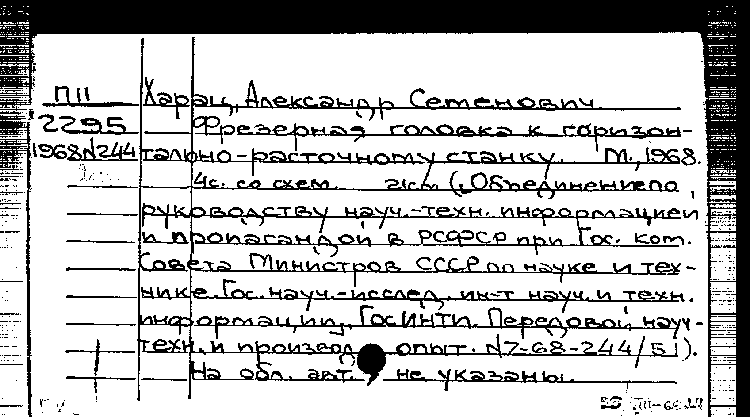 П11
2295
1968N244
Харац, Александр Семенович.
Фрезерная головка к горизон-
тально-расточному станку. М., 1968.
4с. со схем. 21см („Объединение по
руководству науч.-техн. информацией
и пропагандой в РСФСР при Гос. ком.
Совета Министров СССР по науке и тех-
нике. Гос. науч.-исслед. ин-т науч. и техн.
информации, ГОСИНТИ. Передовой науч-
техн. и производ. опыт. N7-68-244/51).
На обл. авт. не указаны.